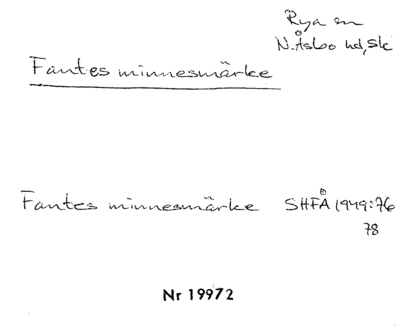 Rya sn
N. Åsbo hd, Sk
Fantes minnesmärke
Fantes minnesmärke SHFÅ 1949:76
78
Nr 19972